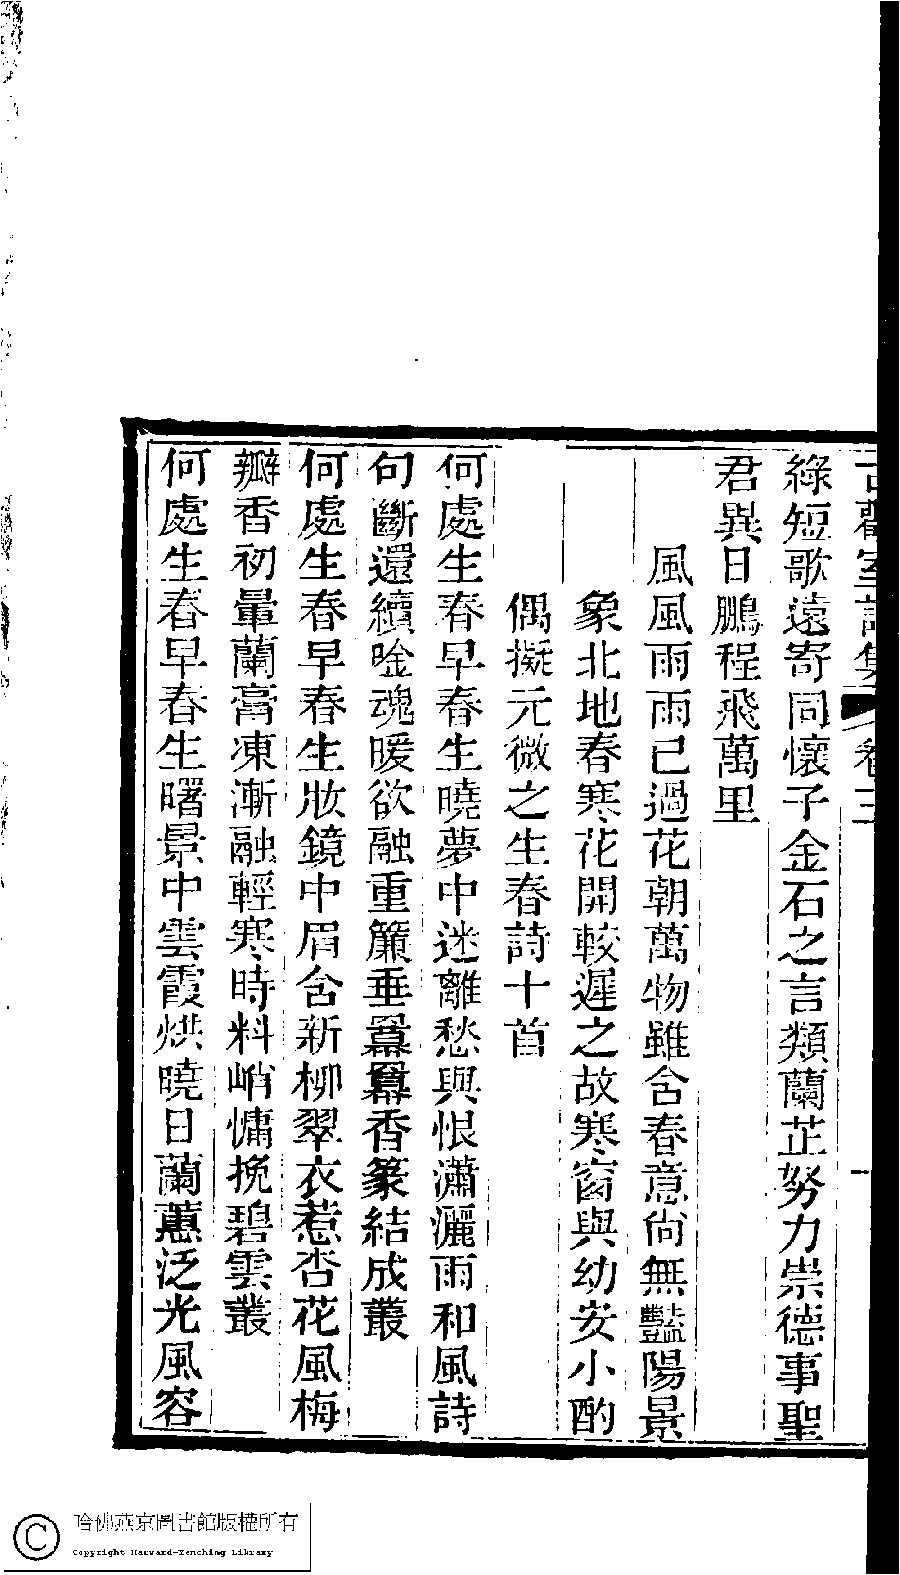 綠短歌遠寄同懷子金石之言類蘭芷努力崇德事聖
君異日鵬程飛萬里
風風雨雨已過花朝萬物雖含春意尙無豔陽景
象北地春寒花開較遲之故寒窗與幼安小酌
偶擬元微之生春詩十首
何處生春早春生曉夢中迷離愁與恨瀟灑雨和風詩
句斷還續唫魂暖欲融重簾垂羃羃香篆結成叢
何處生春早春生妝鏡中眉含新柳翠衣惹杏花風梅
瓣香初暈蘭膏凍漸融輕寒時料峭慵挽碧雲叢
何處生春早春生曙景中雲霞烘曉日蘭蕙泛光風容
哈佛燕京圖書館版權所有
Copyright Harvard-Yenching Library